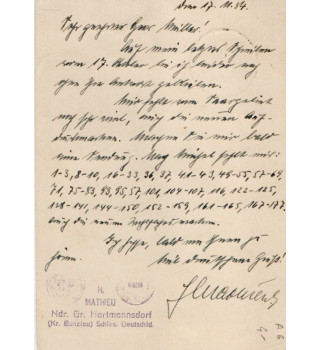 den 17. 11. 34.
Sehr geehrter Herr Müller!
Auf mein letztes Schreiben
vom 17. Oktober bin ich leider
ohne Ihre Antwort geblieben.
Mir fehlt vom Saargebiet
noch sehr viel, auch die neuen
Machen Sie mir bald
eine Sendung. Nach Michel fehlt mir:
1-3, 8-10, 16-33, 36, 37, 41-43, 49-55, 57-69,
71, 75-83, 93, 95, 57, 101, 104-107, 116, 122-125,
128-141, 144-150, 152-159, 161-165, 167-177.
auch die neuen
Ich hoffe, bald von Ihnen zu
hören. Mit deutschem Gruß!
H.
MATHIEU
Ndr. Gr. Hartmannsdorf
(Kr. Bunzlau) Schles. Deutschld.